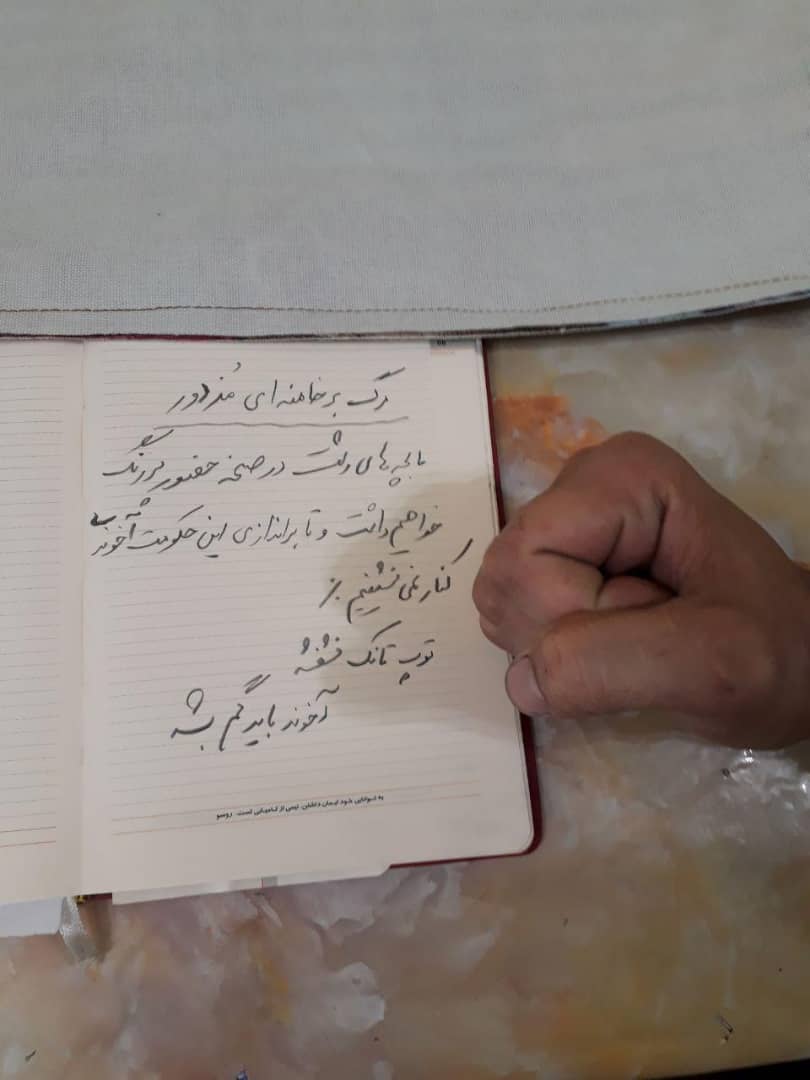 مرگ بر خامنه ای مُزدور
ما بچه های رشت در صحنه حضور پررنگ
خواهیم داشت و تا براندازی این حکومت آخوند
کنار نمی نشینیم
توپ تانک فشفشه
آخوند باید گم بشه
به توانایی خود ایمان داشتن، نیمی از کامیابی است. روسو